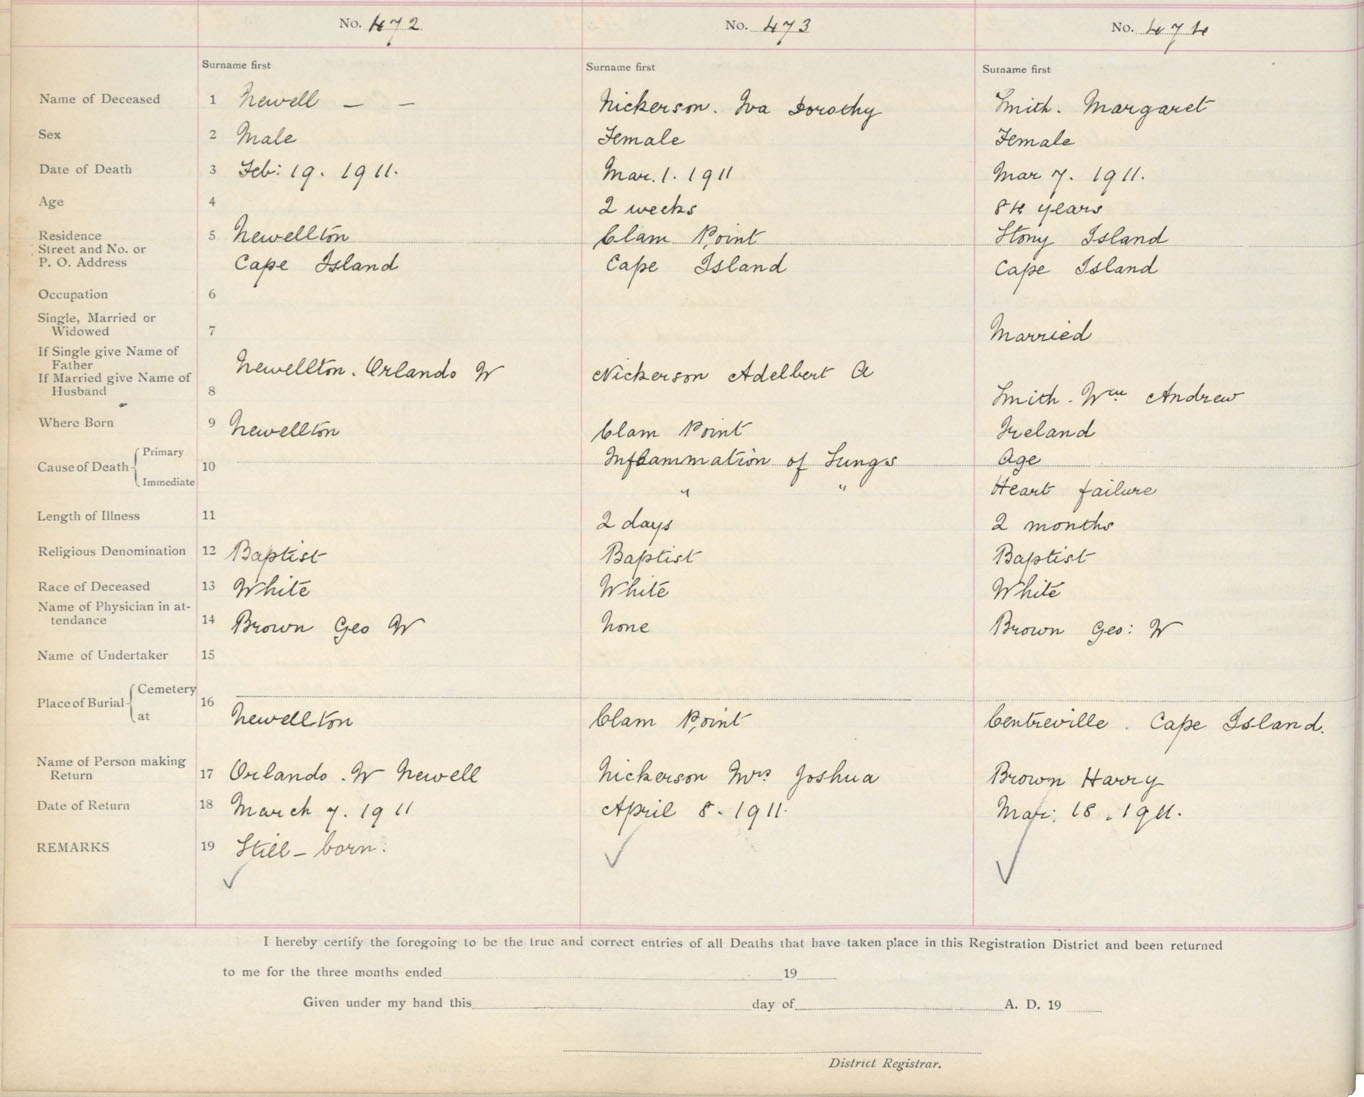 No. 472 No. 473 No. 474
Surname first Surname first Surname first
Name of Deceased 1 Newell — — Nickerson. Iva Dorothy Smith. Margaret
Sex 2 Male Female Female
Date of Death 3 Feb: 19. 1911. Mar. 1. 1911 Mar 7. 1911.
Age 4 2 weeks 84 years
Residence 5 Newellton Clam Point Stony Island
Street and No. or
P. O. Address Cape Island Cape Island Cape Island
Occupation 6
Single, Married or
Widowed 7 Married
If Single give Name of
Father Newellton. Orlando W Nickerson Adelbert A
If Married give Name of
Husband 8 Smith. Wm Andrew
Where Born 9 Newellton Clam Point Ireland
Cause of Death Primary 10 Inflammation of Lungs Age
Immediate " " Heart failure
Length of Illness 11 2 days 2 months
Religious Denomination 12 Baptist Baptist Baptist
Race of Deceased 13 White White White
Name of Physician in at-
tendance 14 Brown Geo W None Brown Geo: W
Name of Undertaker 15
Place of Burial Cemetery 16
at Newellton Clam Point Centreville. Cape Island.
Name of Person making
Return 17 Orlando. W Newell Nickerson Mrs Joshua Brown Harry
Date of Return 18 March 7. 1911 April 8. 1911. Mar: 18. 1911.
REMARKS 19 Still-born.
I hereby certify the foregoing to be the true and correct entries of all Deaths that have taken place in this Registration District and been returned
to me for the three months ended 19
Given under my hand this day of A. D. 19
District Registrar.